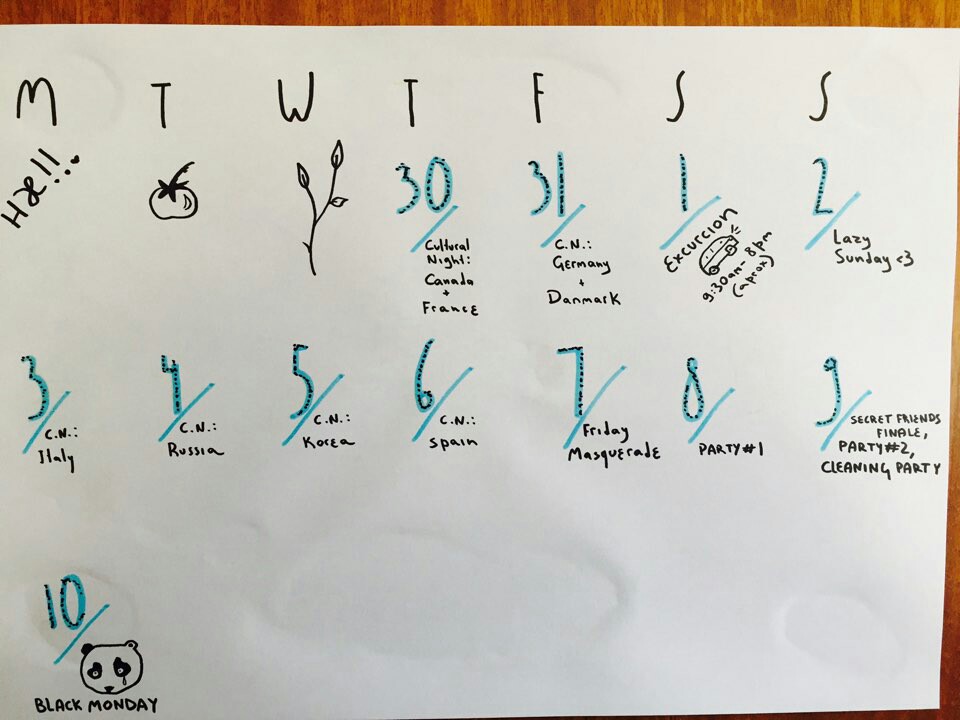 M T W T F S S
Hæ!!
30
Cultural
Night:
Canada
+
France
31
C.N.:
Germany
+
Danmark
1
Excurcion
9:30am - 8pm
(aprox)
2
Lazy
Sunday <3
3
C.N.:
Italy
4
C.N.:
Russia
5
C.N.:
Korea
6
C.N.:
Spain
7
Friday
Masquerade
8
PARTY #1
9
SECRET FRIENDS
FINALE,
PARTY #2,
CLEANING PARTY
10
BLACK MONDAY